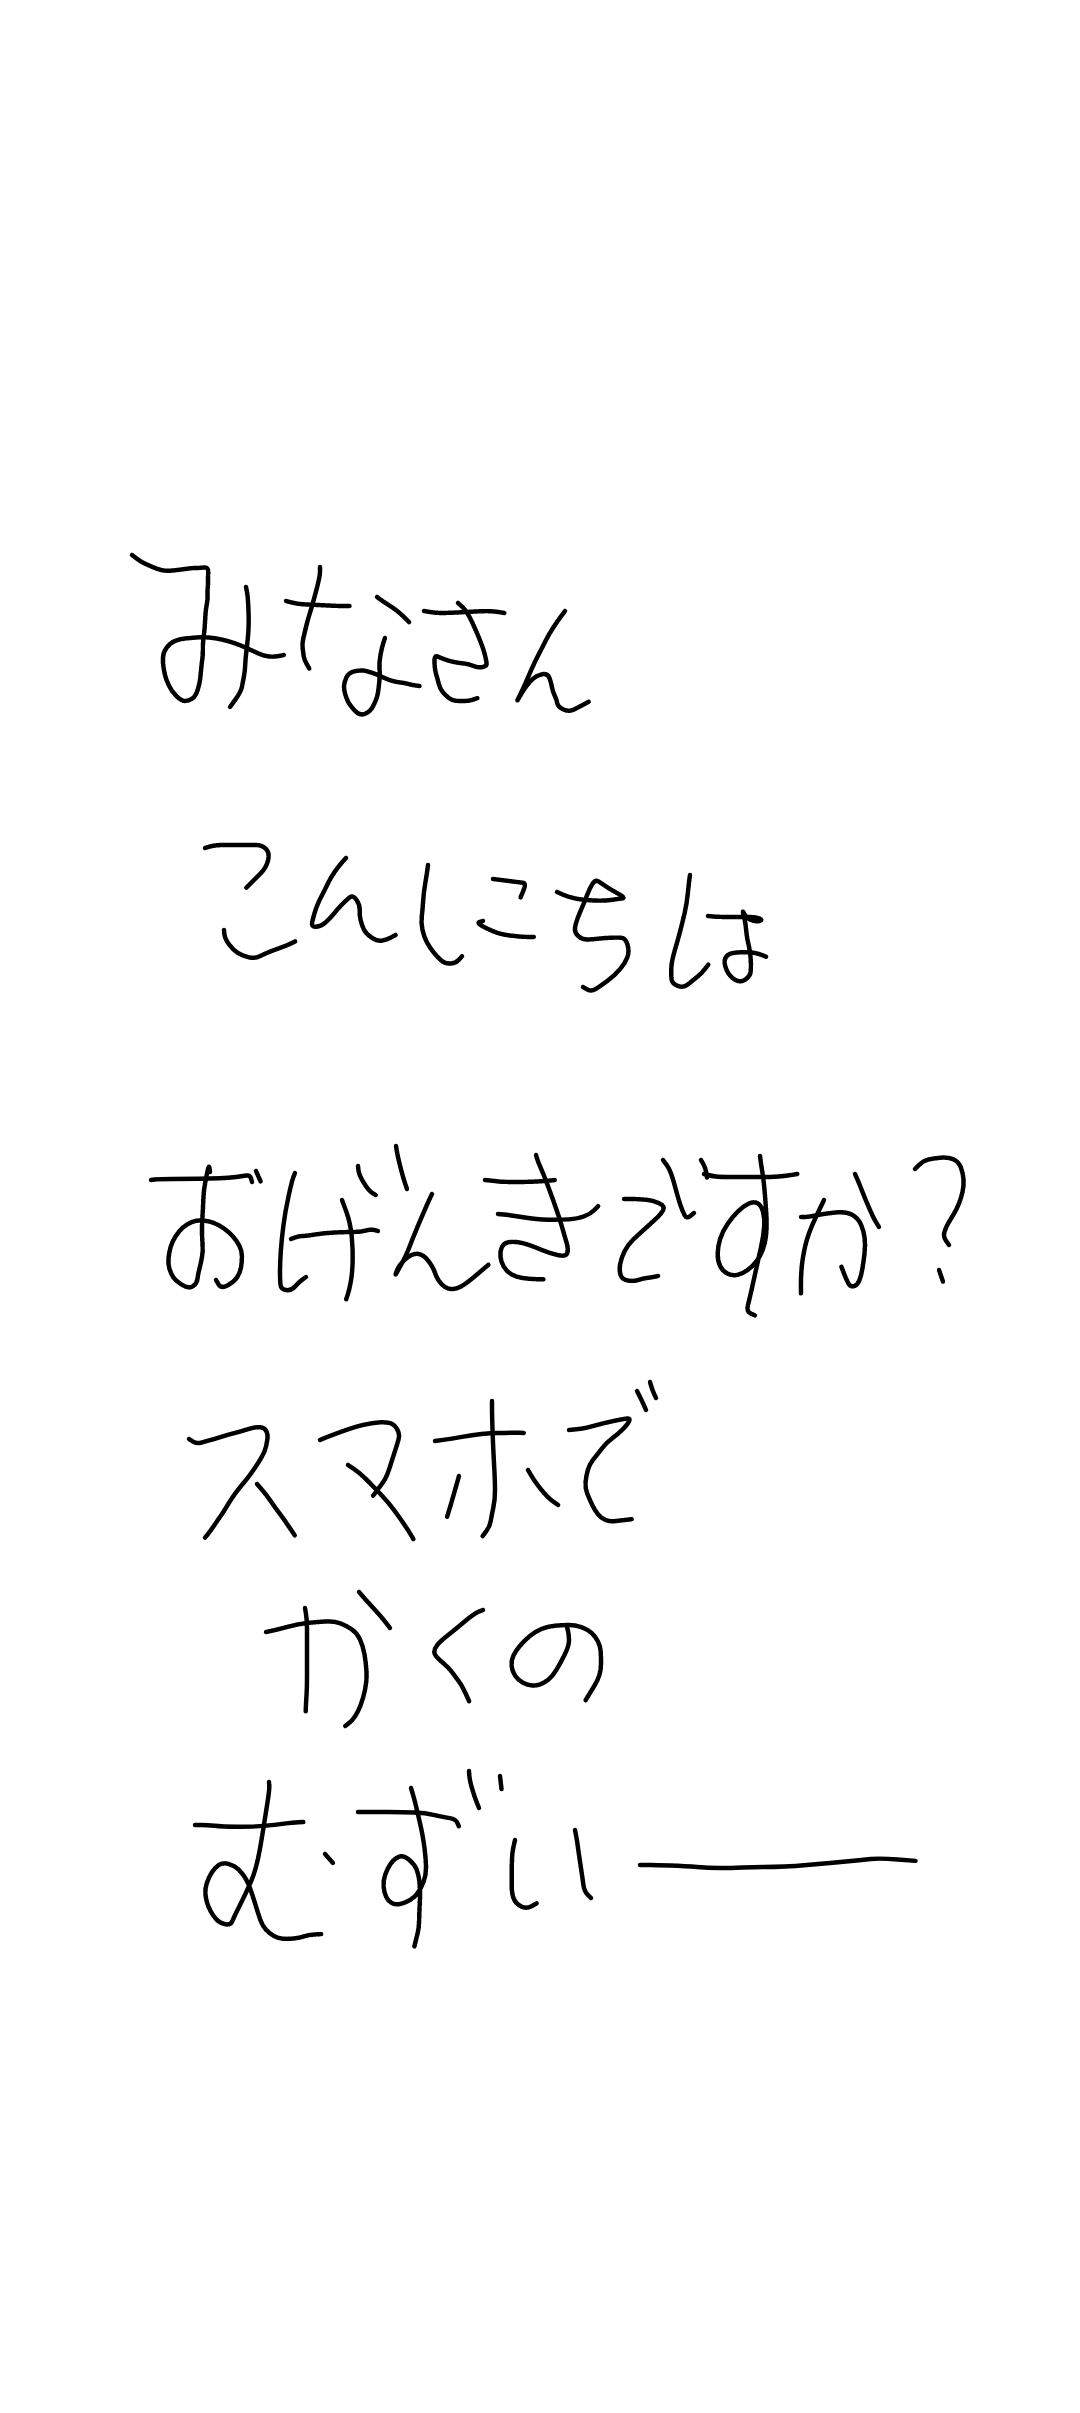 みなさん
こんにちは
おげんきですか?
スマホで
かくの
むずいー